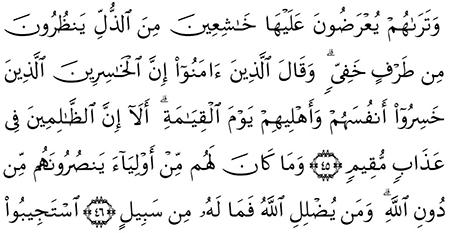 وَتَرَىٰهُمْ يُعْرَضُونَ عَلَيْهَا خَـٰشِعِينَ مِنَ ٱلذُّلِّ يَنظُرُونَ
مِن طَرْفٍ خَفِىٍّۗ وَقَالَ ٱلَّذِينَ ءَامَنُوٓا۟ إِنَّ ٱلْخَـٰسِرِينَ ٱلَّذِينَ
خَسِرُوٓا۟ أَنفُسَهُمْ وَأَهْلِيهِمْ يَوْمَ ٱلْقِيَـٰمَةِۗ أَلَآ إِنَّ ٱلظَّـٰلِمِينَ فِى
عَذَابٍ مُّقِيمٍ ﴿٤٥﴾ وَمَا كَانَ لَهُم مِّنْ أَوْلِيَآءَ يَنصُرُونَهُم مِّن
دُونِ ٱللَّهِۗ وَمَن يُضْلِلِ ٱللَّهُ فَمَا لَهُۥ مِن سَبِيلٍ ﴿٤٦﴾ ٱسْتَجِيبُوا۟